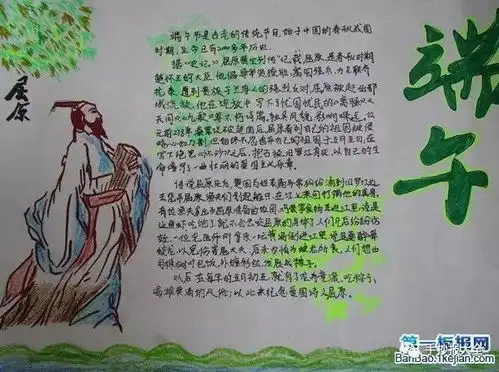 端午
屈原
端午节是古老的传统节日,始于中国的春秋战国
时期,至今已有2000多年历史。
据《史记》屈原贾生列传》记载,屈原,是春秋时期
楚怀王的大臣,他倡导举贤授能,富国强兵,力主联齐
抗秦,遭到贵族子兰等人的强烈反对,屈原被赶出都
城,流放。他在流放中,写下了忧国忧民的《离骚》《
天问》《九歌》等不朽诗篇,独具风貌,影响深远。公
元前278年,秦军攻破楚国后,屈原看到自己的祖国被侵
略,心如刀割,但始终不忍舍弃自己的祖国,于五月五日,在
写下绝笔《怀沙》之后,抱石投汨罗江身死,以自己的生
命谱写了一曲壮丽的爱国主义乐章。
传说屈原死后,楚国百姓哀痛异常,纷纷涌到汨罗江边
去凭吊屈原。渔夫们划起船只,在江上来回打捞他的真身。
有位渔夫拿出为屈原准备的饭团,
鱼虾吃饱了,就不会去咬屈原的身体了。人们见后纷纷仿
效。一位老医师则拿来一坛雄黄酒倒进江里,说是要药晕
蛟龙
以后,在每年的五月初五,就有了龙舟竞渡、吃粽子、
喝雄黄酒的风俗;以此来纪念爱国诗人屈原。
第一板报网
BanBao.1kejian.com